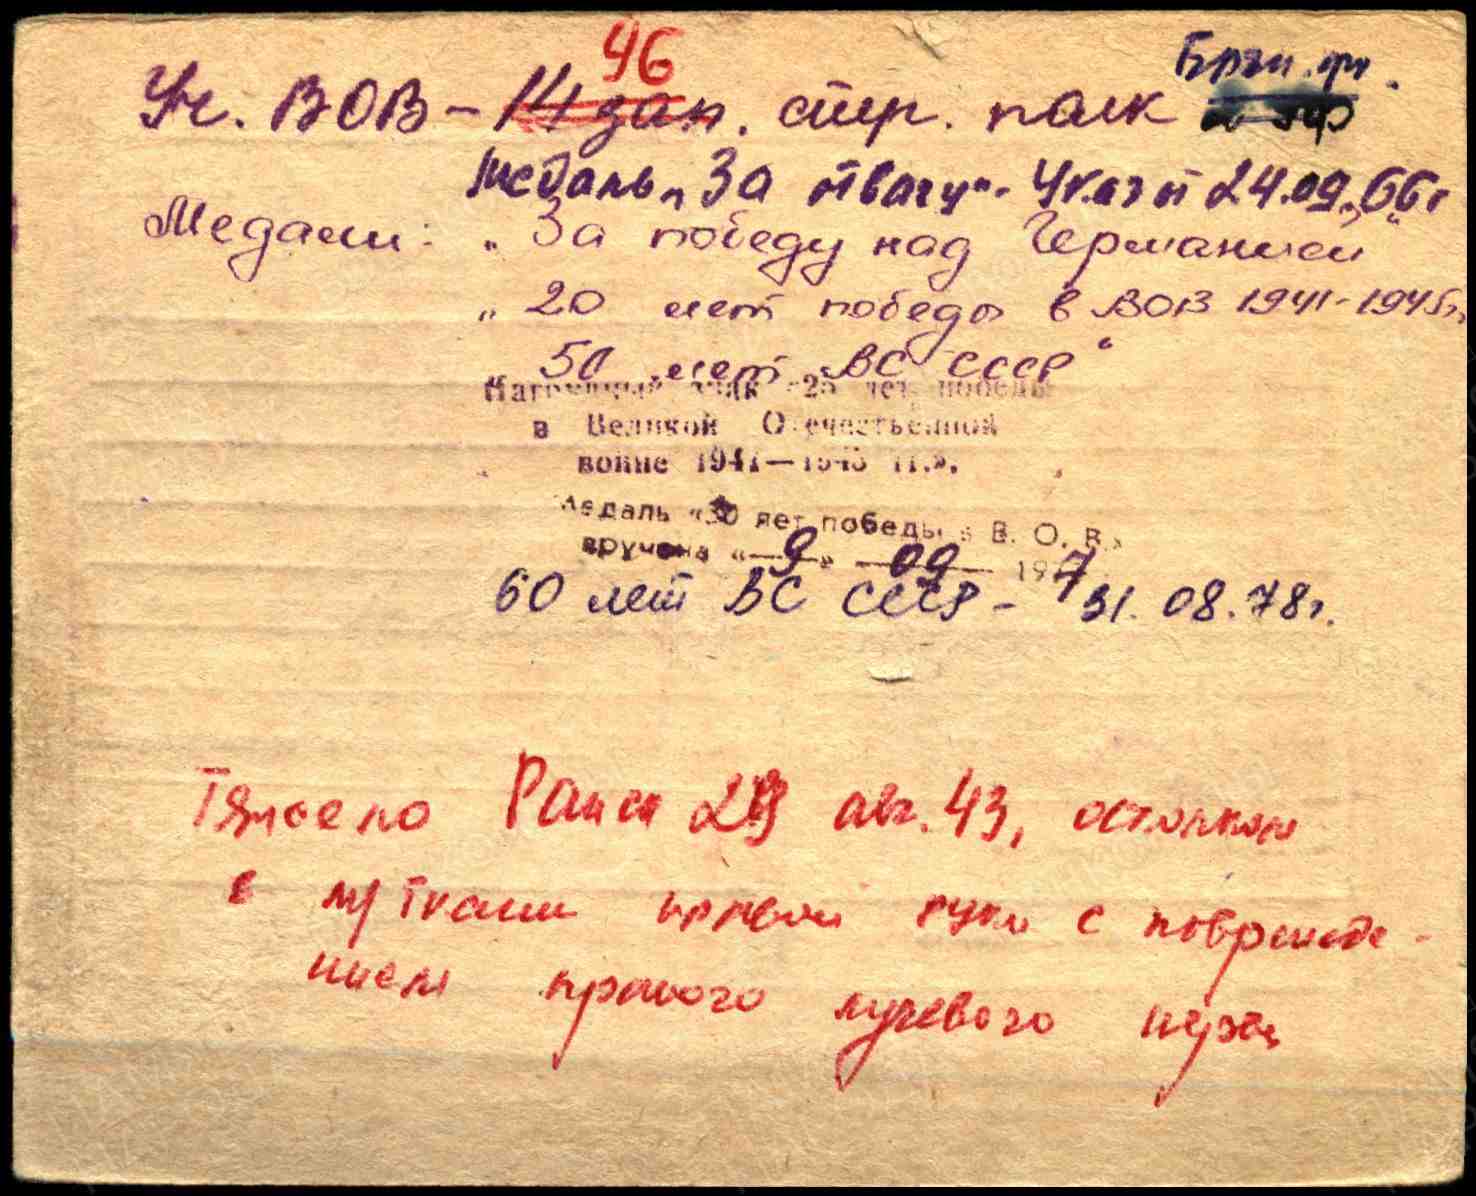 46
Брян. фр.
Уч. ВОВ – 14 зап. стр. полк
Медаль „За отвагу“. Указ от 24.09.66г
Медали: „За победу над Германией“
„20 лет победы в ВОВ 1941-1945гг.
50 лет ВС СССР“
Нагрудный знак «25 лет победы
в Великой Отечественной
войне 1941—1945 гг.».
Медаль «30 лет победы в В. О. В.»
вручена «9» 09 1977
60 лет ВС СССР – 31.08.78г.
Тяжело Ранен авг. 43, осколком
в м/ткани правой руки с поврежде-
нием правого лучевого нерва